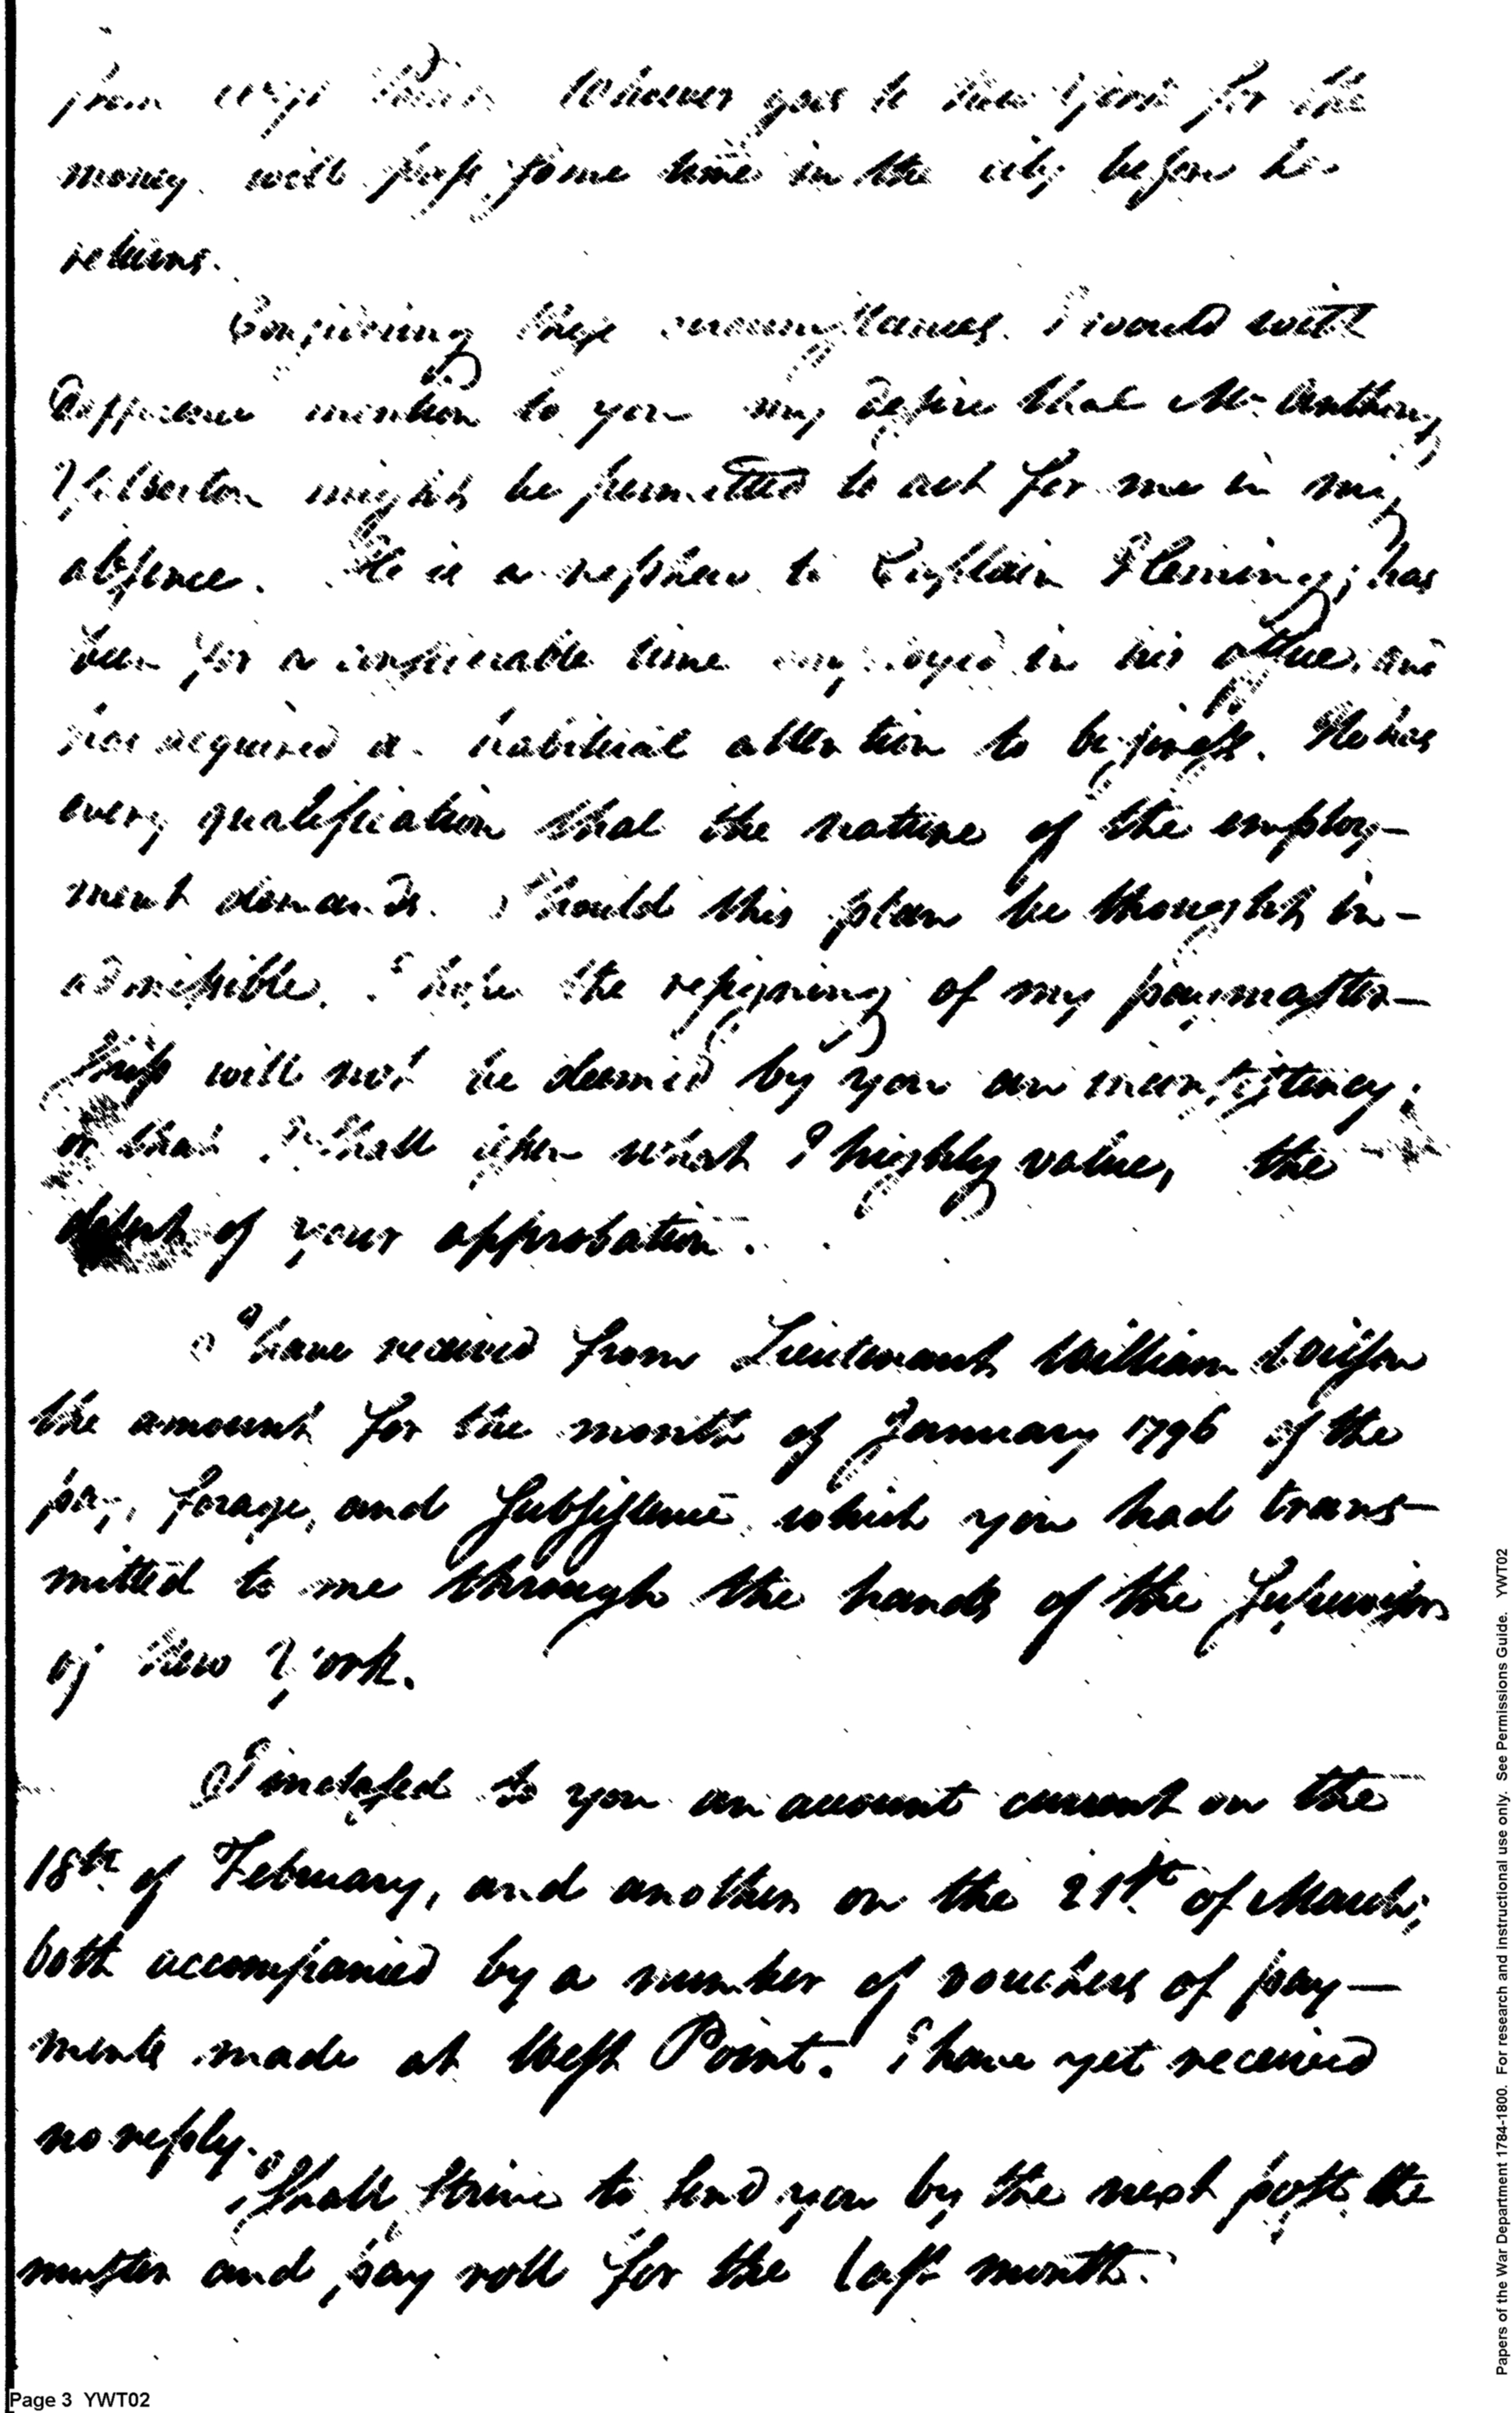 from West Point. Whoever goes to New York for the
money, will pass some time in the city before he
returns.
Considering these circumstances, I would with
deference mention to you my desire that Mr. Anthony
Yelverton might be permitted to act for me in my
absence. He is a nephew to Captain Fleming; has
been for a considerable time employed in his office; and
has acquired a habitual attention to business. He has
every qualification that the nature of the employ-
ment demands. Should this plan be thought in-
admissible, I hope the resigning of my paymaster-
ship will not be deemed by you an inconsistency;
or that I shall what I highly value, the
of your approbation.
I have received from Lieutenant William Wilson
the amount for the month of January 1796 of the
pay, forage, and subsistence, which you had trans-
mitted to me through the hands of the Supervisor
of New York.
I inclosed to you an account current on the
18th of February, and another on the 21st of March;
both accompanied by a number of vouchers of pay-
ments made at West Point. I have yet received
no reply.
I shall strive to send you by the next post, the
muster and pay roll for the last month.
Page 3 YWT02
Papers of the War Department 1784-1800. For research and instructional use only. See Permissions Guide. YWT02